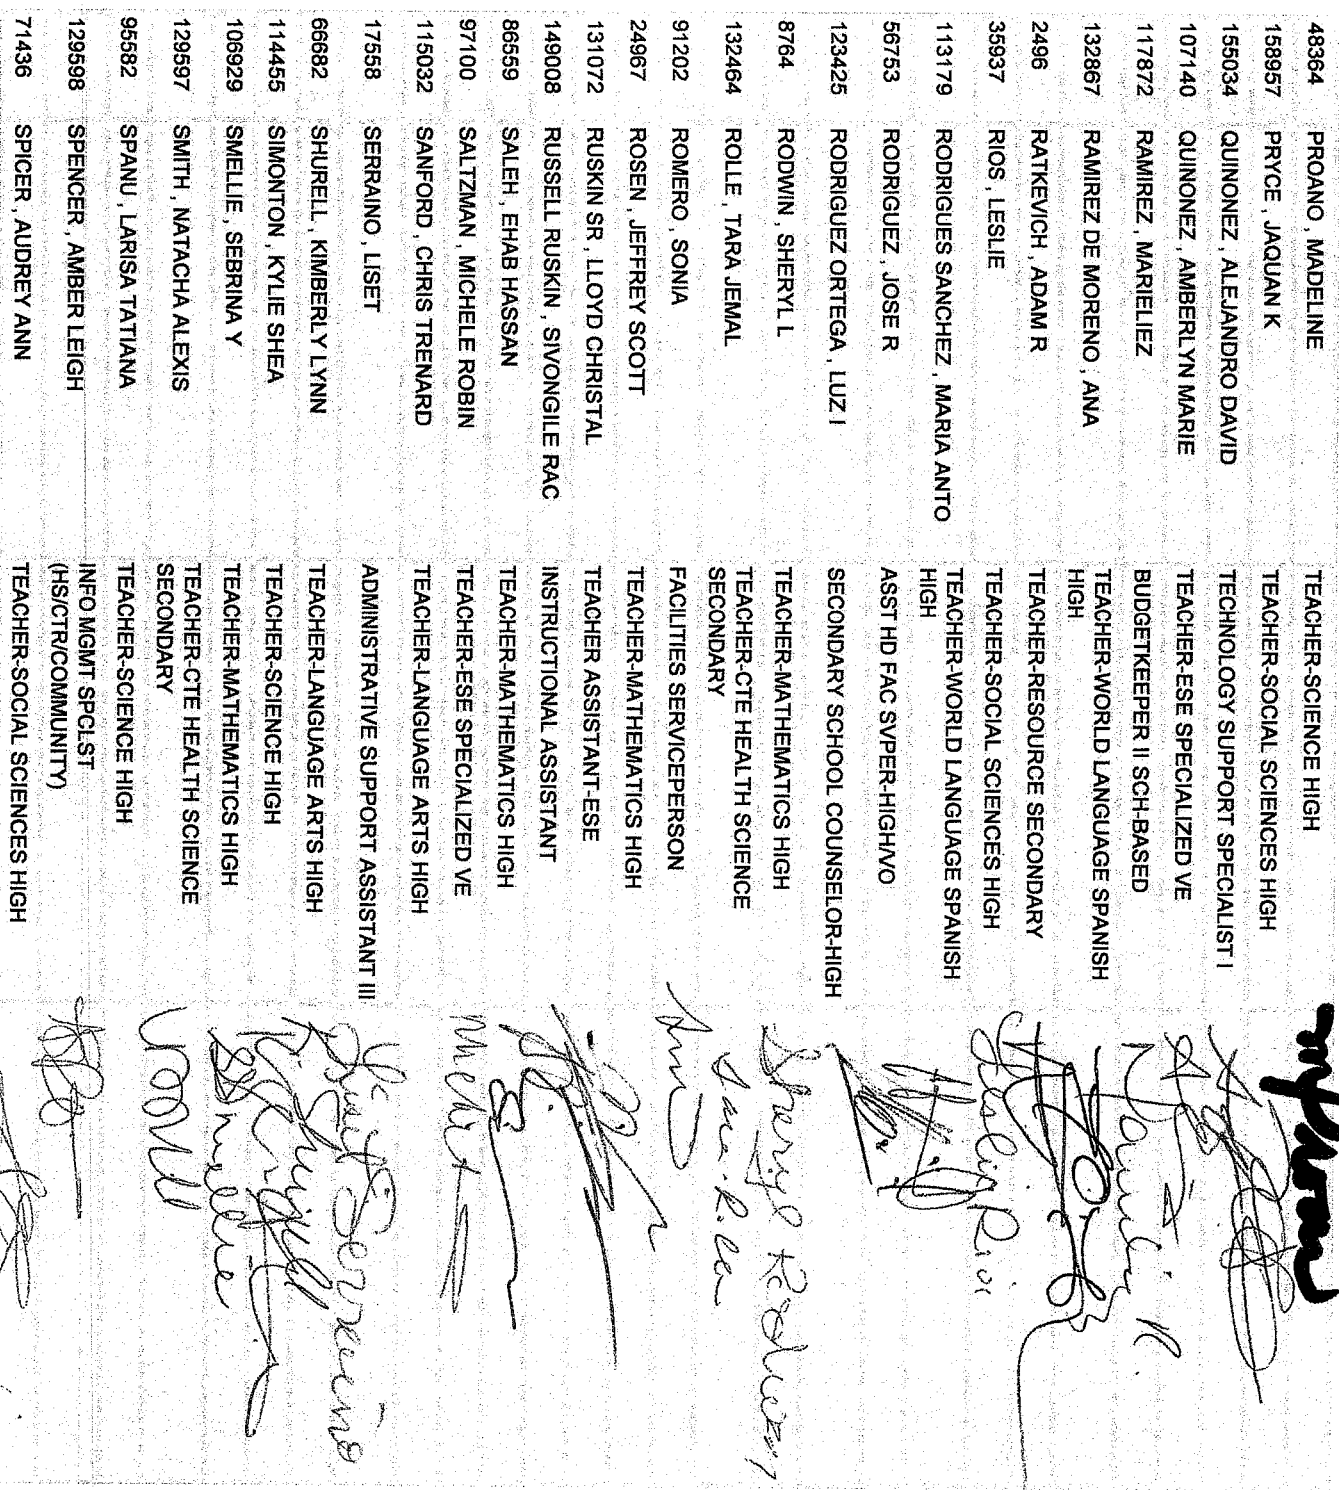 48364 PROANO , MADELINE TEACHER-SCIENCE HIGH
158957 PRYCE , JAQUAN K TEACHER-SOCIAL SCIENCES HIGH
155034 QUINONEZ , ALEJANDRO DAVID TECHNOLOGY SUPPORT SPECIALIST I
107140 QUINONEZ , AMBERLYN MARIE TEACHER-ESE SPECIALIZED VE
117872 RAMIREZ , MARIELIEZ BUDGETKEEPER II SCH-BASED
132867 RAMIREZ DE MORENO , ANA TEACHER-WORLD LANGUAGE SPANISH
HIGH
2496 RATKEVICH , ADAM R TEACHER-RESOURCE SECONDARY
35937 RIOS , LESLIE TEACHER-SOCIAL SCIENCES HIGH Leslie Rios
113179 RODRIGUES SANCHEZ , MARIA ANTO TEACHER-WORLD LANGUAGE SPANISH
HIGH
56753 RODRIGUEZ , JOSE R ASST HD FAC SVPER-HIGH/VO
123425 RODRIGUEZ ORTEGA , LUZ I SECONDARY SCHOOL COUNSELOR-HIGH
8764 RODWIN , SHERYL L TEACHER-MATHEMATICS HIGH Sheryl
132464 ROLLE , TARA JEMAL TEACHER-CTE HEALTH SCIENCE
SECONDARY
91202 ROMERO , SONIA FACILITIES SERVICEPERSON
24967 ROSEN , JEFFREY SCOTT TEACHER-MATHEMATICS HIGH
131072 RUSKIN SR , LLOYD CHRISTAL TEACHER ASSISTANT-ESE
149008 RUSSELL RUSKIN , SIVONGILE RAC INSTRUCTIONAL ASSISTANT
86559 SALEH , EHAB HASSAN TEACHER-MATHEMATICS HIGH
97100 SALTZMAN , MICHELE ROBIN TEACHER-ESE SPECIALIZED VE
115032 SANFORD , CHRIS TRENARD TEACHER-LANGUAGE ARTS HIGH
17558 SERRAINO , LISET ADMINISTRATIVE SUPPORT ASSISTANT III Liset Serraino
66682 SHURELL , KIMBERLY LYNN TEACHER-LANGUAGE ARTS HIGH
114455 SIMONTON , KYLIE SHEA TEACHER-SCIENCE HIGH
106929 SMELLIE , SEBRINA Y TEACHER-MATHEMATICS HIGH Smellie
129597 SMITH , NATACHA ALEXIS TEACHER-CTE HEALTH SCIENCE
SECONDARY
95582 SPANU , LARISA TATIANA TEACHER-SCIENCE HIGH
129598 SPENCER , AMBER LEIGH INFO MGMT SPCLST
(HS/CTR/COMMUNITY)
71436 SPICER , AUDREY ANN TEACHER-SOCIAL SCIENCES HIGH